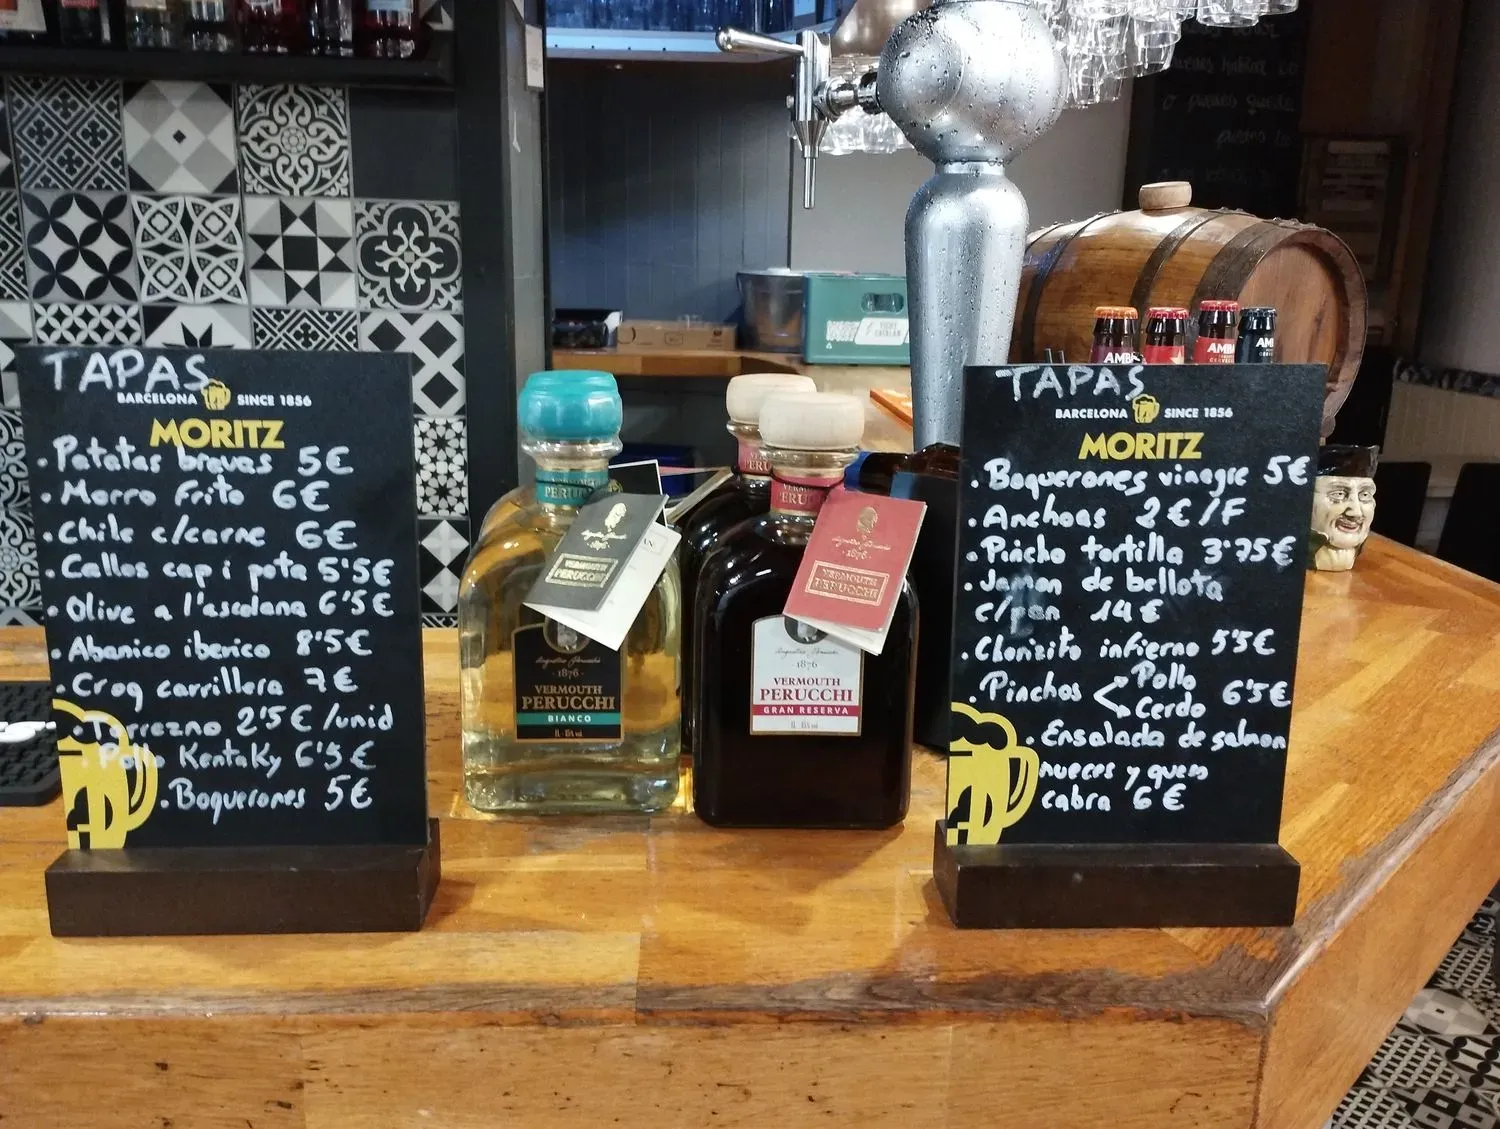 TAPAS
BARCELONA SINCE 1856
MORITZ
. Patatas bravas 5€
. Morro frito 6€
. Chile c/carne 6€
. Callos cap i pota 5'5€
. Olive a l'ascolana 6'5€
. Abanico iberico 8'5€
. Croq carrillera 7€
. Torrezno 2'5€/unid
. Pollo Kentaky 6'5€
. Boquerones 5€
PERUCCHI
1876
VERMOUTH
PERUCCHI
1876
VERMOUTH
PERUCCHI
BIANCO
1876
VERMOUTH
PERUCCHI
1876
VERMOUTH
PERUCCHI
GRAN RESERVA
VICHY
CATALAN
AMB
AMB
AM
TAPAS
BARCELONA SINCE 1856
MORITZ
. Boquerones vinagre 5€
. Anchoas 2€/F
. Pincho tortilla 3'75€
. Jamon de bellota
c/pan 14€
. Chorizito infierno 5'5€
. Pinchos Pollo
Cerdo 6'5€
. Ensalada de salmon
nueces y queso
cabra 6€